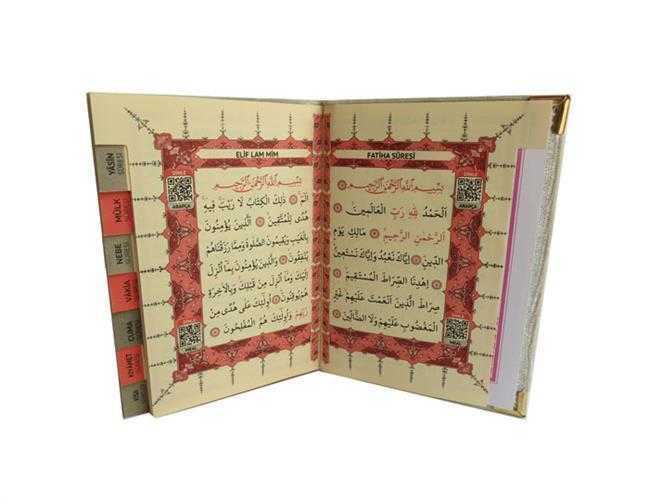 FATİHA SÛRESİ
DİNLE
ARAPÇA
بِسْمِ اللّٰهِ الرَّحْمٰنِ الرَّحِيمِ
اَلْحَمْدُ لِلّٰهِ رَبِّ الْعَالَمِينَ
اَلرَّحْمٰنِ الرَّحِيمِ مَالِكِ يَوْمِ
الدِّينِ اِيَّاكَ نَعْبُدُ وَاِيَّاكَ نَسْتَعِينُ
اِهْدِنَا الصِّرَاطَ الْمُسْتَقِيمَ
صِرَاطَ الَّذِينَ اَنْعَمْتَ عَلَيْهِمْ غَيْرِ
الْمَغْضُوبِ عَلَيْهِمْ وَلَا الضَّالِّينَ
MEAL
ELİF LAM MİM
DİNLE
ARAPÇA
بِسْمِ اللّٰهِ الرَّحْمٰنِ الرَّحِيمِ
الٓمٓ ذٰلِكَ الْكِتَابُ لَا رَيْبَ فِيهِ
هُدًى لِلْمُتَّقِينَ اَلَّذِينَ يُؤْمِنُونَ
بِالْغَيْبِ وَيُقِيمُونَ الصَّلٰوةَ وَمِمَّا رَزَقْنَاهُمْ
يُنْفِقُونَ وَالَّذِينَ يُؤْمِنُونَ بِمَا اُنْزِلَ
اِلَيْكَ وَمَا اُنْزِلَ مِنْ قَبْلِكَ وَبِالْاٰخِرَةِ
هُمْ يُوقِنُونَ اُولٰئِكَ عَلٰى هُدًى مِنْ
رَبِّهِمْ وَاُولٰئِكَ هُمُ الْمُفْلِحُونَ
MEAL
YÂSİN
SÛRESİ
MÜLK
SÛRESİ
NEBE
SÛRESİ
VAKIA
CUMA
KIYAMET